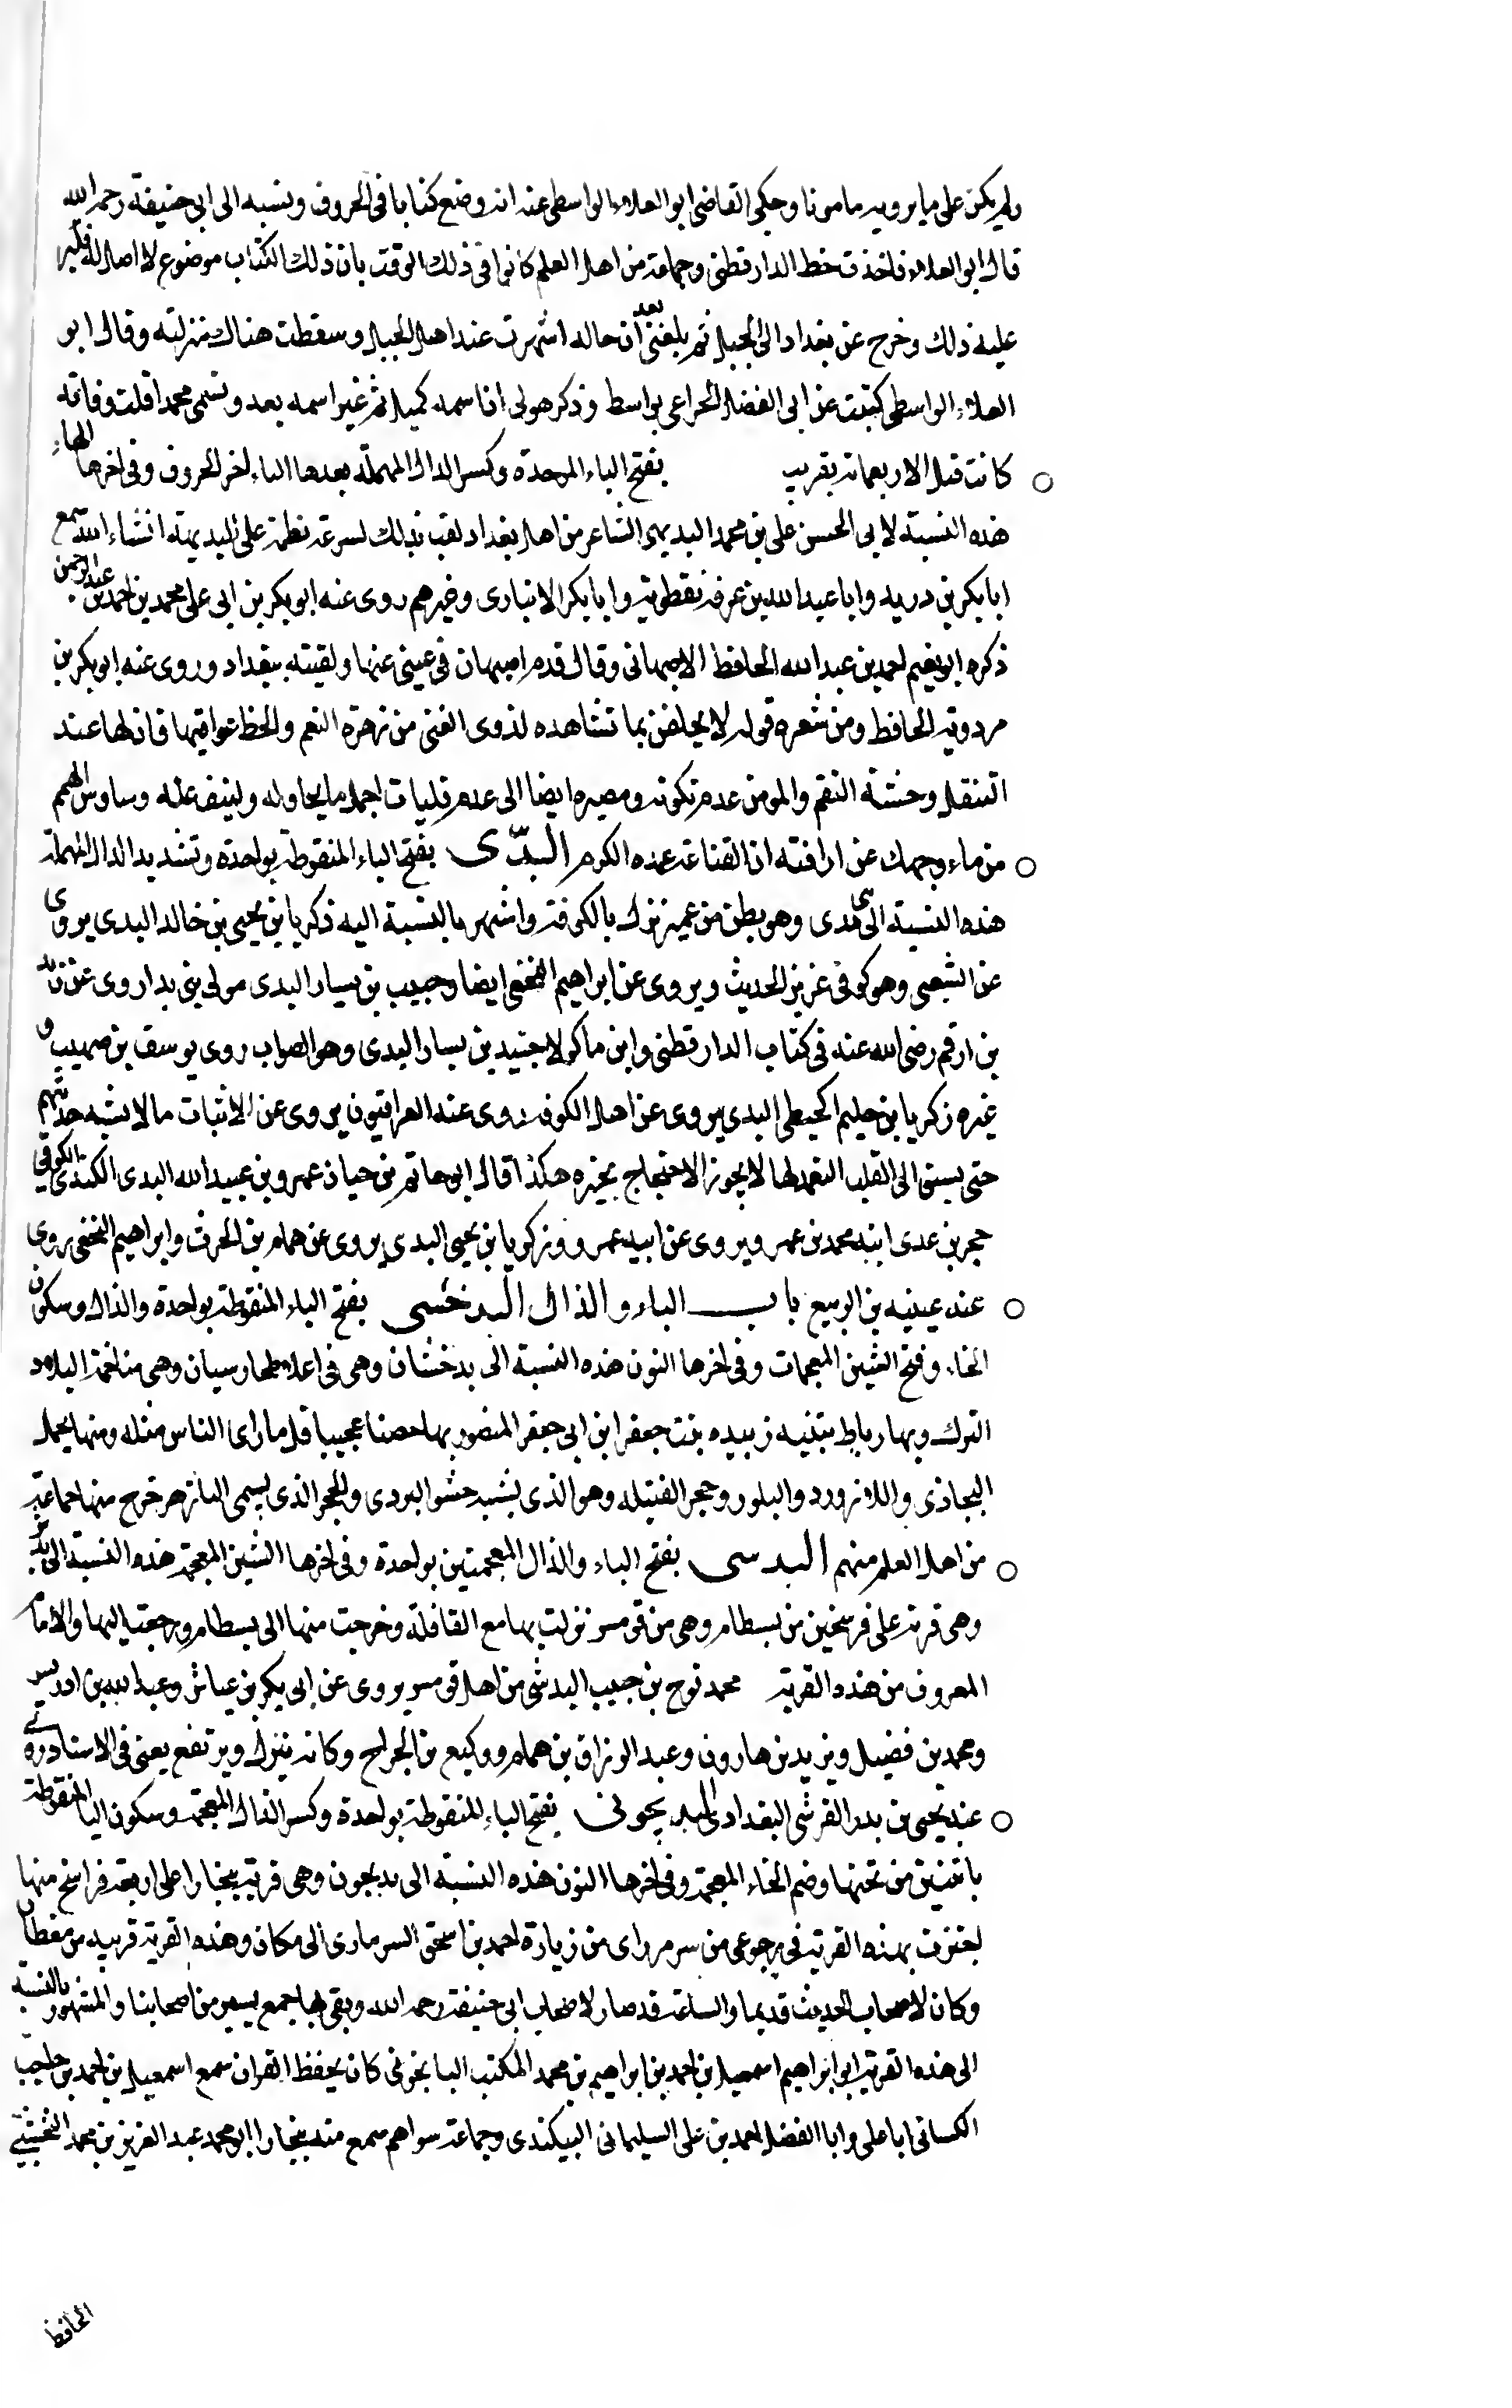 ولم يكن على ما يرويه مامونا وحكى القاضى ابو العلاء الواسطى عنه انه وضع كتابا فى الحروف ونسبه الى ابى حنيفة رحمه الله
قال ابو العلاء فاخذت خط الدارقطنى وجماعة من اهل العلم كانوا فى ذلك الوقت بان ذلك الكتاب موضوع لا اصل له فكبر
عليه ذلك وخرج عن بغداد الى الجبل ثم بلغنى بعد ان حاله اشتهرت عند اهل الجبل وسقطت هناك منزلته وقال ابو
العلاء الواسطى كتبت عن ابى الفضل الخزاعى بواسط وذكر هو لى ان اسمه كميل ثم غير اسمه بعد وتسمى محمدا قلت وفاته
كانت قبل الاربعمائة بقريب بفتح الباء الموحدة وكسر الدال المهملة بعدها الياء اخر الحروف وفى اخرها الهاء
هذه النسبة لابى الحسن على بن محمد البديهى الشاعر من اهل بغداد لقب بذلك لسرعة نظمه على البديهة انشاء الله سمع
ابا بكر بن دريد وابا عبد الله بن عرفة نفطويه وابا بكر الانبارى وغيرهم روى عنه ابو بكر بن ابى على محمد بن احمد بن عبد الرحمن
ذكره ابو نعيم احمد بن عبد الله الحافظ الاصبهانى وقال قدم اصبهان فى غيبتى عنها ولقيته ببغداد وروى عنه ابو بكر بن
مردويه الحافظ ومن شعره قوله لا بما تشاهده لذوى الغنى من زهرة النعم والحظ عواقبها فانها عند
التنقل وحشة النقم والمومن عدم تكونه ومصيره ايضا الى عدم اجمل ما يحاوله ولينف عنه وساوس الهمم
من ماء وجهك عن اراقته ان القناعة عمدة الكرم البدّى بفتح الباء المنقوطة بواحدة وتشديد الدال المهملة
هذه النسبة الى بدى وهو بطن من نزل بالكوفة واشتهر بالنسبة اليه زكريا بن يحيى بن خالد البدى يروى
عن الشعبى وهو كوفى عزيز الحديث ويروى عن ابراهيم النخعى ايضا وحبيب بن يسار البدى مولى بنى بدا روى عن زيد
بن ارقم رضى الله عنه فى كتاب الدارقطنى وابن ماكولا جنيد بن يسار البدى وهو الصواب روى يوسف بن صهيب و
غيره زكريا بن حليم الحبطى البدى يروى عن اهل الكوفة روى عنه العراقيون يروى عن الاثبات ما لا يشبه حديثهم
حتى يسبق الى القلب التعمد لها لا يجوز الاحتجاج بخبره هكذا قال ابو حاتم بن حبان عمرو بن عبيد الله البدى الكندى الكوفى
حجر بن عدى ابنه محمد بن عمرو يروى عن ابيه عمرو وزكريا بن يحيى البدى يروى عن همام بن الحرث وابراهيم النخعى روى
عنه عيينه بن الربيع باب الباء والذال البدخشى بفتح الباء المنقوطة بواحدة والذال وسكون
الخاء وفتح الشين المعجمات وفى اخرها النون هذه النسبة الى بدخشان وهى فى اعلا طخارستان وهى متاخمة البلاد
الترك وبها رباط بنته زبيده بنت جعفر ابن ابى جعفر المنصور بها حصنا عجيبا قل ما راى الناس مثله ومنها يحمل
البجاذى واللازورد والبلور وحجر الفتيله وهو الذى يشبه حشو البردى والحجر الذى يسمى البازهر خرج منها جماعة
من اهل العلم منهم البدسى بفتح الباء والذال المعجمتين بواحدة وفى اخرها الشين المعجمة هذه النسبة الى بذش
وهى قرية على فرسخين من بسطام وهى من قومس نزلت بها مع القافلة وخرجت منها الى بسطام ورجعت اليها والامام
المعروف من هذه القرية محمد نوح بن حبيب البدشى من اهل قومس يروى عن ابى بكر بن عياش وعبد الله بن ادريس
ومحمد بن فضيل ويزيد بن هارون وعبد الرزاق بن همام ووكيع بن الجراح وكان ينزل ويرتفع يعنى فى الاسناد روى
عنه يحيى بن بدر القرشى البغدادى البديخونى بفتح الباء المنقوطة بواحدة وكسر الذال المعجمة وسكون اليا المنقوطة
باثنتين من تحتها وضم الخاء المعجمة وفى اخرها النون هذه النسبة الى بديخون وهى قرية ببخارا على اربعة فراسخ منها
اجتزت بهذه القرية فى رجوعى من سرمراى من زيارة احمد بن اسحق السرمارى الى مكان وهذه القرية قريبه من مغطان
وكان لاصحاب الحديث قديما والساعة قد صار لاصحاب ابى حنيفة رحمه الله وبقى بها جمع يسير من اصحابنا والمشهور بالنسبة
الى هذه القرية ابو ابراهيم اسمعيل بن احمد بن ابراهيم بن محمد المكتب البابخونى كان يحفظ القران سمع اسمعيل بن احمد بن حاجب
الكسانى ابا على وابا الفضل احمد بن على السليمانى البيكندى وجماعة سواهم سمع منه ببخارا ابو محمد عبد العزيز بن محمد النخشبى
الحافظ